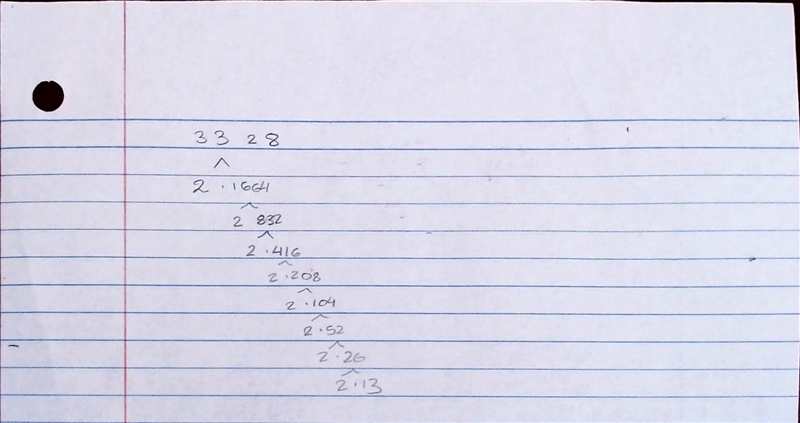 3328
2 · 1664
2 832
2 · 416
2 · 208
2 · 104
2 · 52
2 · 26
2 · 13